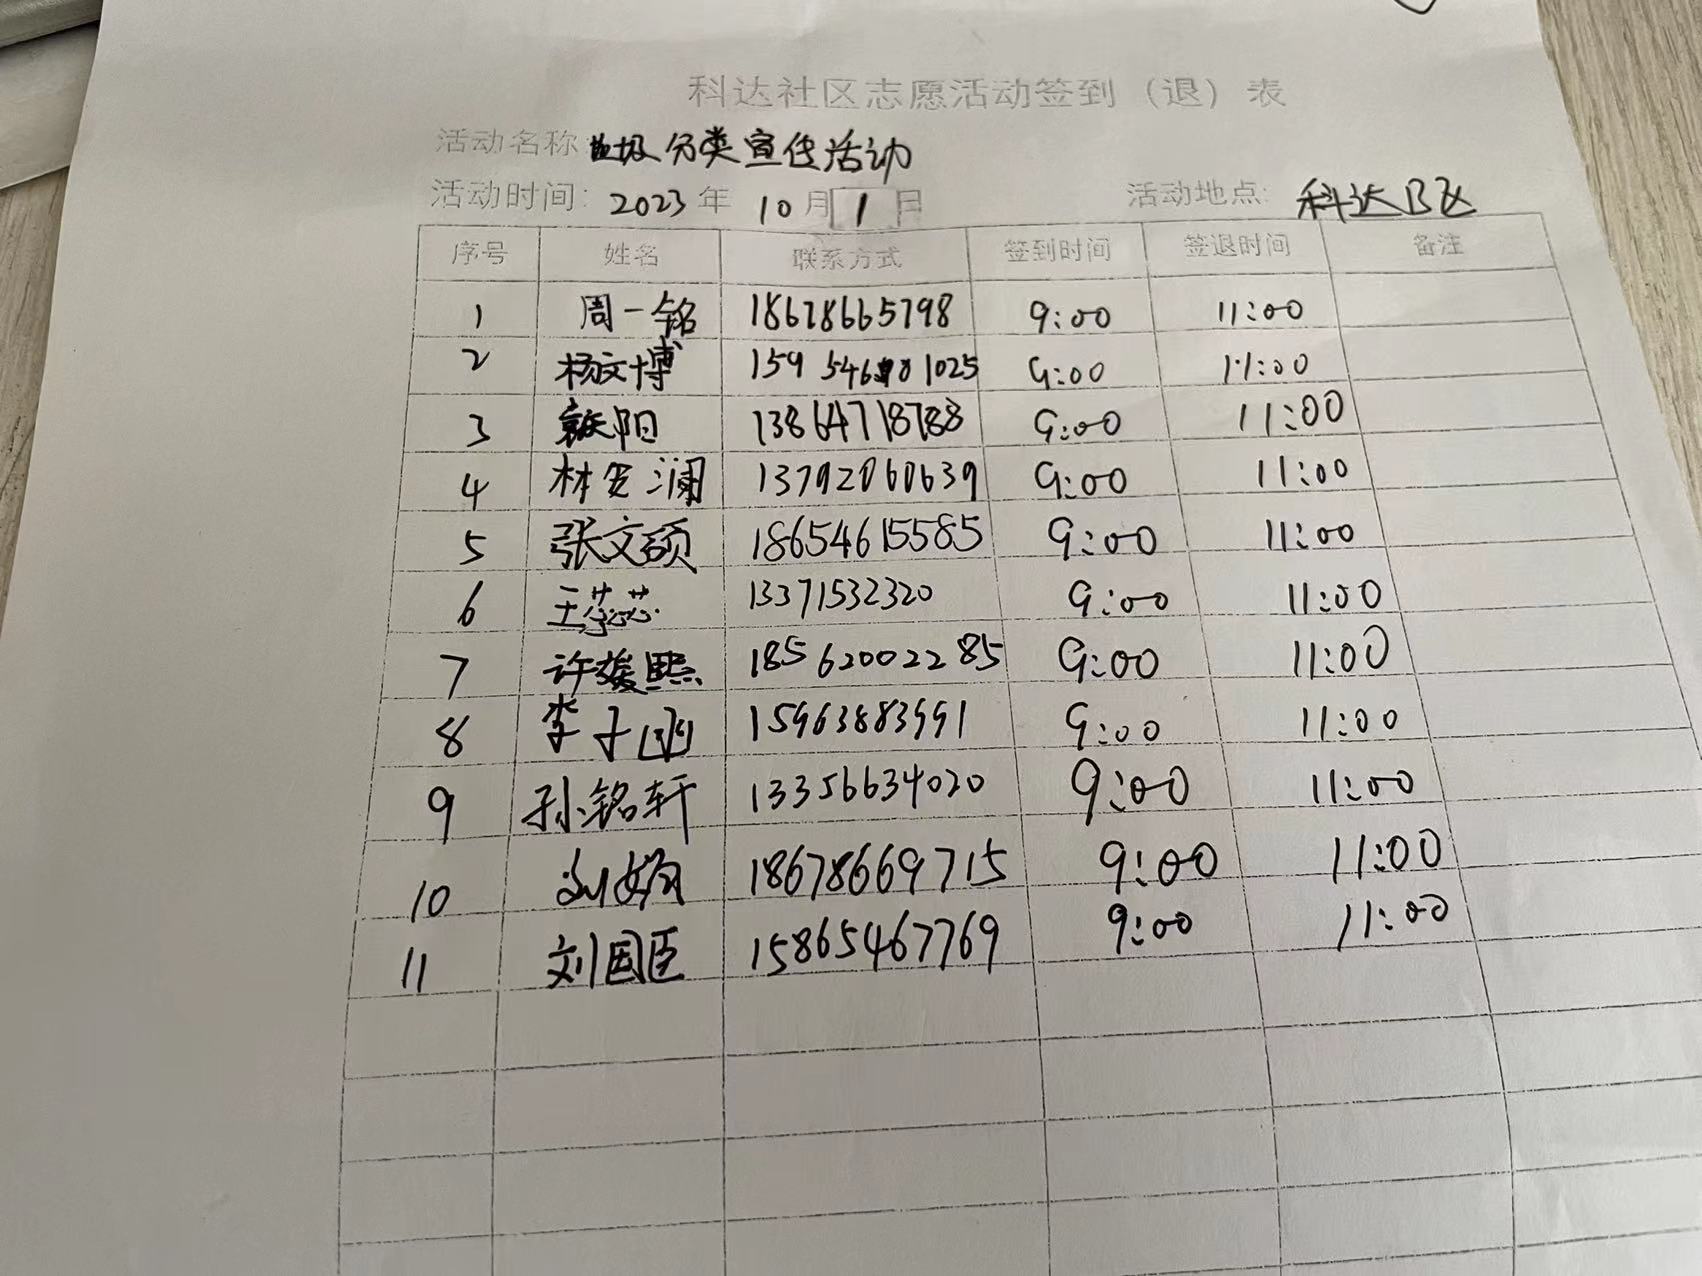 科达社区志愿活动签到（退）表
活动名称：垃圾分类宣传活动
活动时间：2023年 10月1日 活动地点：科达B区
序号 姓名 联系方式 签到时间 签退时间 备注
1 周一铭 18678665798 9:00 11:00
2 杨文博 159 546 1025 9:00 11:00
3 阳 13864718788 9:00 11:00
4 林 澜 13792060639 9:00 11:00
5 张文硕 18654615585 9:00 11:00
6 王蕊 13371532320 9:00 11:00
7 许 熙 18562002285 9:00 11:00
8 李子涵 15963883991 9:00 11:00
9 孙铭轩 13356634020 9:00 11:00
10 刘 18678669715 9:00 11:00
11 刘国臣 15865467769 9:00 11:00